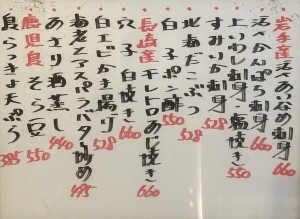 岩手産 活〆あいなめ刺身 660
活〆かんぱち刺身 660
上いわし刺身・塩焼き 550
すみいか刺身 528
北海だこぶつ 528
白子ポン酢 550
穴子白焼き 660
長崎産 モレトロあじ焼き 660
白エビかき揚り
海老とアスパラバター炒め 495
あさり酒蒸し 440
鹿児島 そら豆 550
島らっきょ天ぷら 385